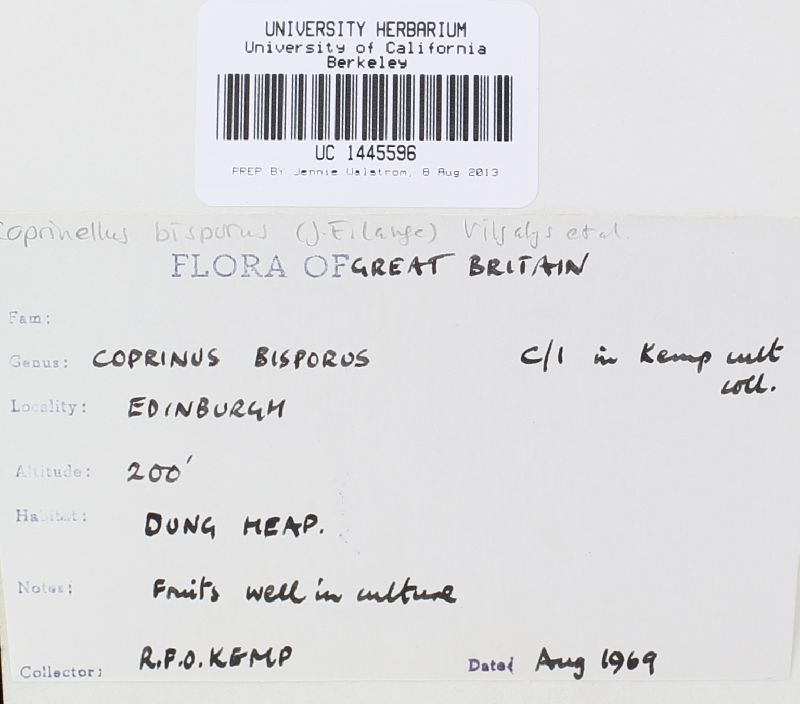 UNIVERSITY HERBARIUM
University of California
Berkeley
UC 1445596
PREP BY Jennie Walstrom, 8 Aug 2013
Coprinellus bisporus (J.E. Lange) Vilgalys et al.
FLORA OF GREAT BRITAIN
Fam:
Genus: COPRINUS BISPORUS C/1 in Kemp cult
coll.
Locality: EDINBURGH
Altitude: 200'
Habitat: DUNG HEAP.
Notes: Fruits well in culture
Collector: R.F.O. KEMP Date: Aug 1969